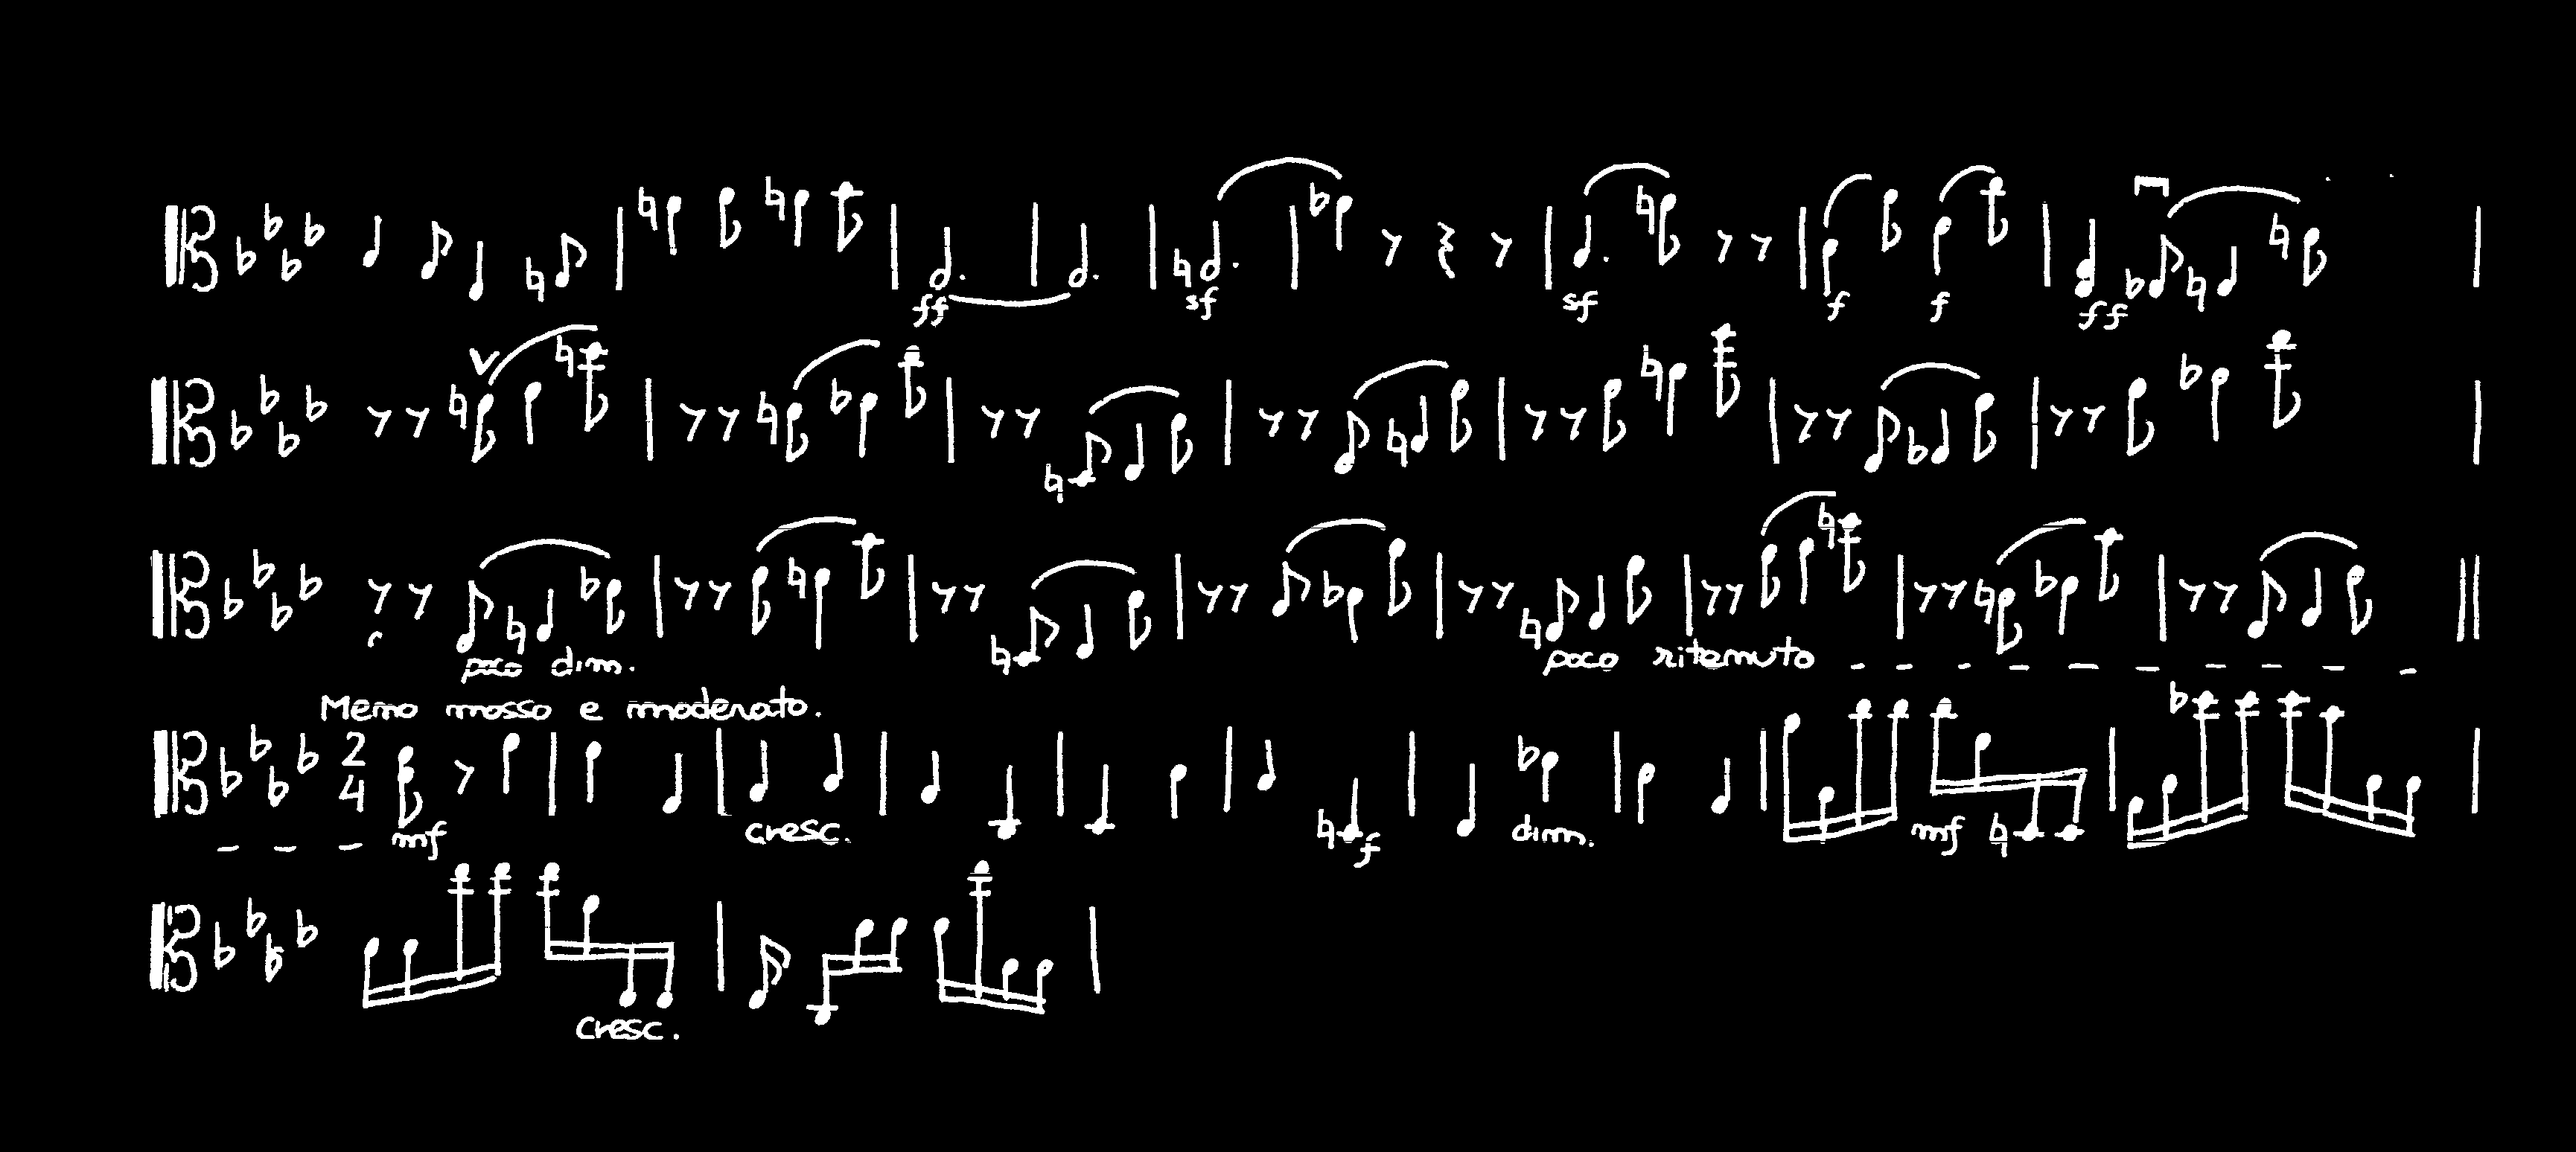 ff sf sf f f ff
poco dim. poco ritenuto
Meno mosso e moderato.
2
4
mf cresc. f dim. mf
cresc.